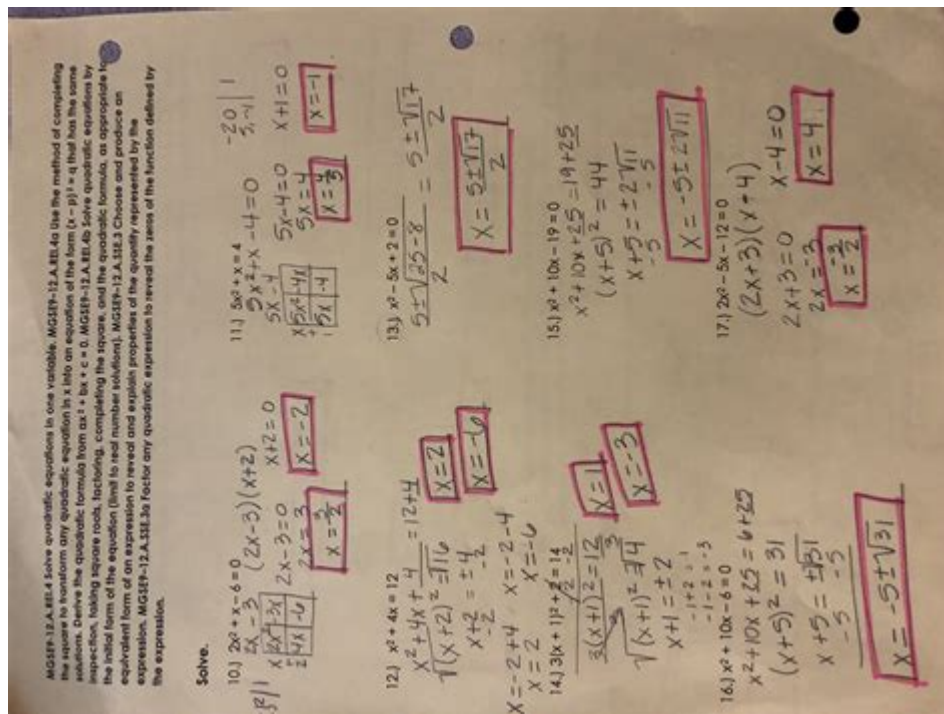 MGSE9-12.A.REI.4 Solve quadratic equations in one variable. MGSE9-12.A.REI.4a Use the method of completing
the square to transform any quadratic equation in x into an equation of the form (x – p)² = q that has the same
solutions. Derive the quadratic formula from ax² + bx + c = 0. MGSE9-12.A.REI.4b Solve quadratic equations by
inspection, taking square roots, factoring, completing the square, and the quadratic formula, as appropriate to
the initial form of the equation (limit to real number solutions). MGSE9-12.A.SSE.3 Choose and produce an
equivalent form of an expression to reveal and explain properties of the quantity represented by the
expression. MGSE9-12.A.SSE.3a Factor any quadratic expression to reveal the zeros of the function defined by
the expression.
Solve.
10.) 2x² + x – 6 = 0
2x -3 (2x-3)(x+2)
x 2x² -3x
2 4x -6
2x-3=0 x+2=0
2x=3
x=3/2 x=-2
11.) 5x² + x = 4
-20 | 1
5,-4
5x²+x-4=0
5x -4
x 5x² -4x
1 5x -4
5x-4=0 x+1=0
5x=4
x=4/5 x=-1
12.) x² + 4x = 12
x²+4x+4=12+4
√(x+2)²=√16
x+2=±4
-2 -2
x=-2+4 x=-2-4
x=2 x=-6
x=2
x=-6
13.) x² – 5x + 2 = 0
5±√25-8/2 = 5±√17/2
x=5±√17/2
14.) 3(x + 1)² + 2 = 14
-2 -2
3(x+1)²=12
3 3
√(x+1)²=√4
x+1=±2
-1+2=1
-1-2=-3
x=1
x=-3
15.) x² + 10x – 19 = 0
x²+10x+25=19+25
(x+5)²=44
x+5=±2√11
-5 -5
x=-5±2√11
16.) x² + 10x – 6 = 0
x²+10x+25=6+25
(x+5)²=31
x+5=±√31
-5 -5
x=-5±√31
17.) 2x² – 5x – 12 = 0
(2x+3)(x-4)
2x+3=0 x-4=0
2x=-3
x=-3/2 x=4